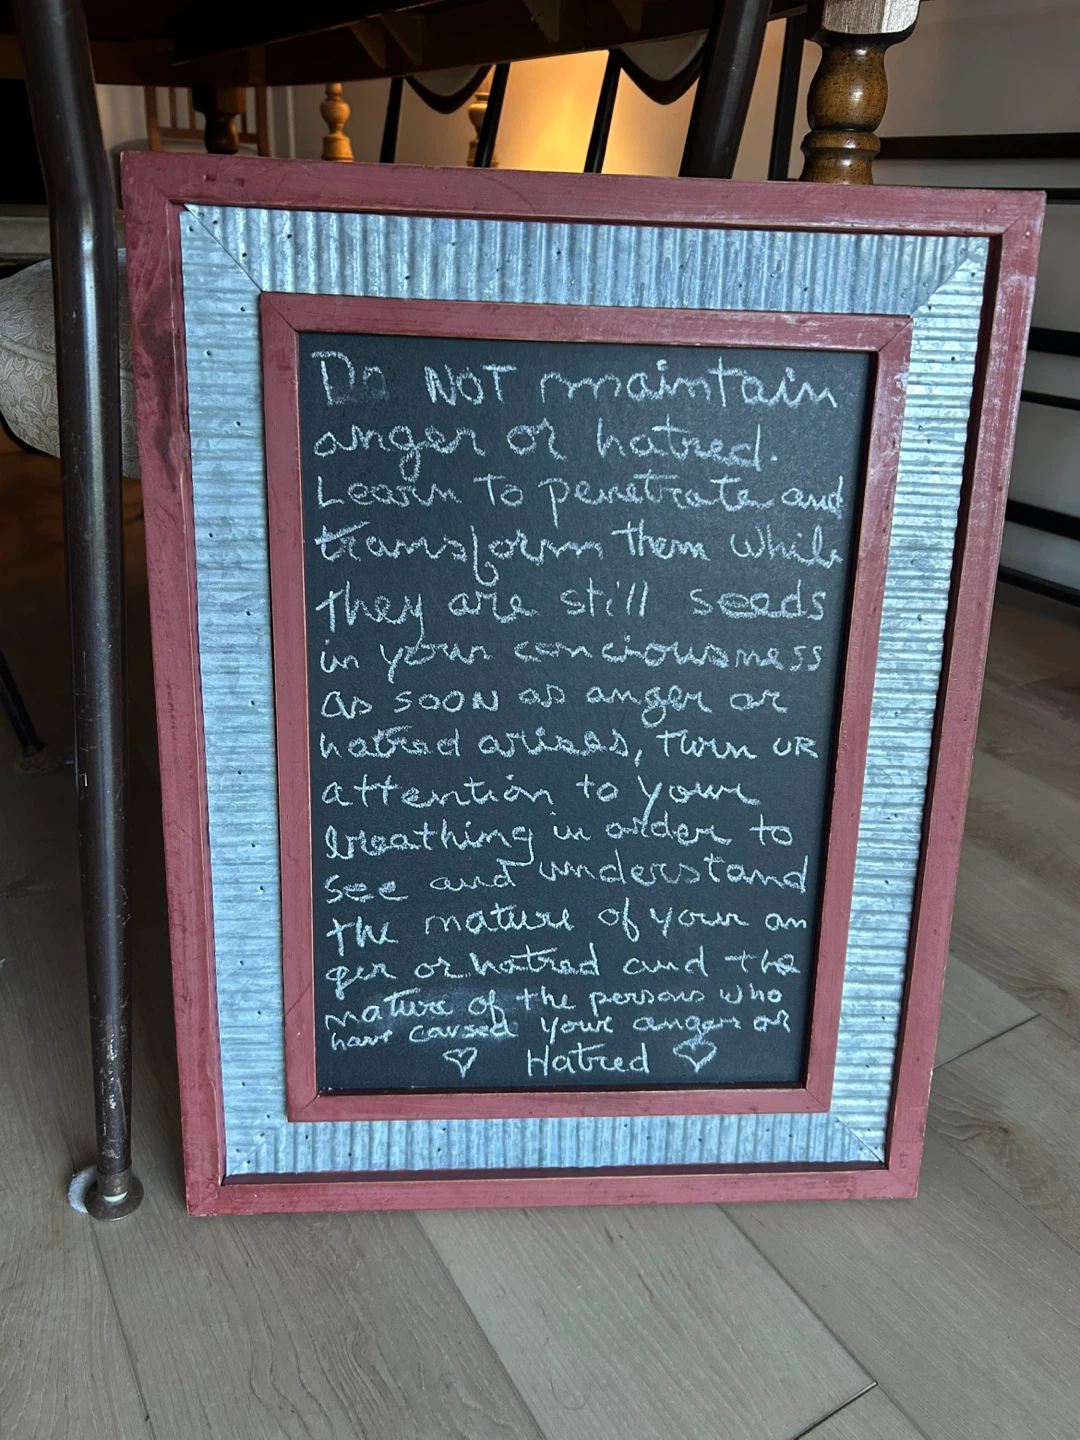 Do NOT maintain
anger or hatred.
Learn to penetrate and
transform them while
they are still seeds
in your conciousness
as soon as anger or
hatred arises, turn UR
attention to your
breathing in order to
see and understand
the nature of your an
ger or hatred and the
nature of the persons who
have caused your anger or
♡ Hatred ♡